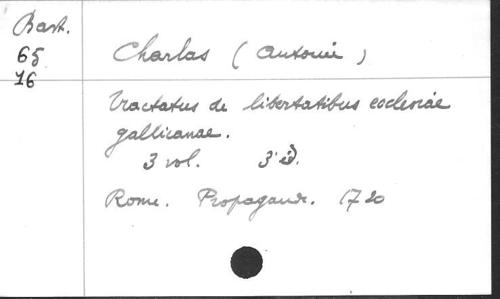 Bast.
65
16
Charlas (Antoine)
Tractatus de libertatibus ecclesiae
gallicanae.
3 vol. 3e éd.
Rome. Propagand. 1720